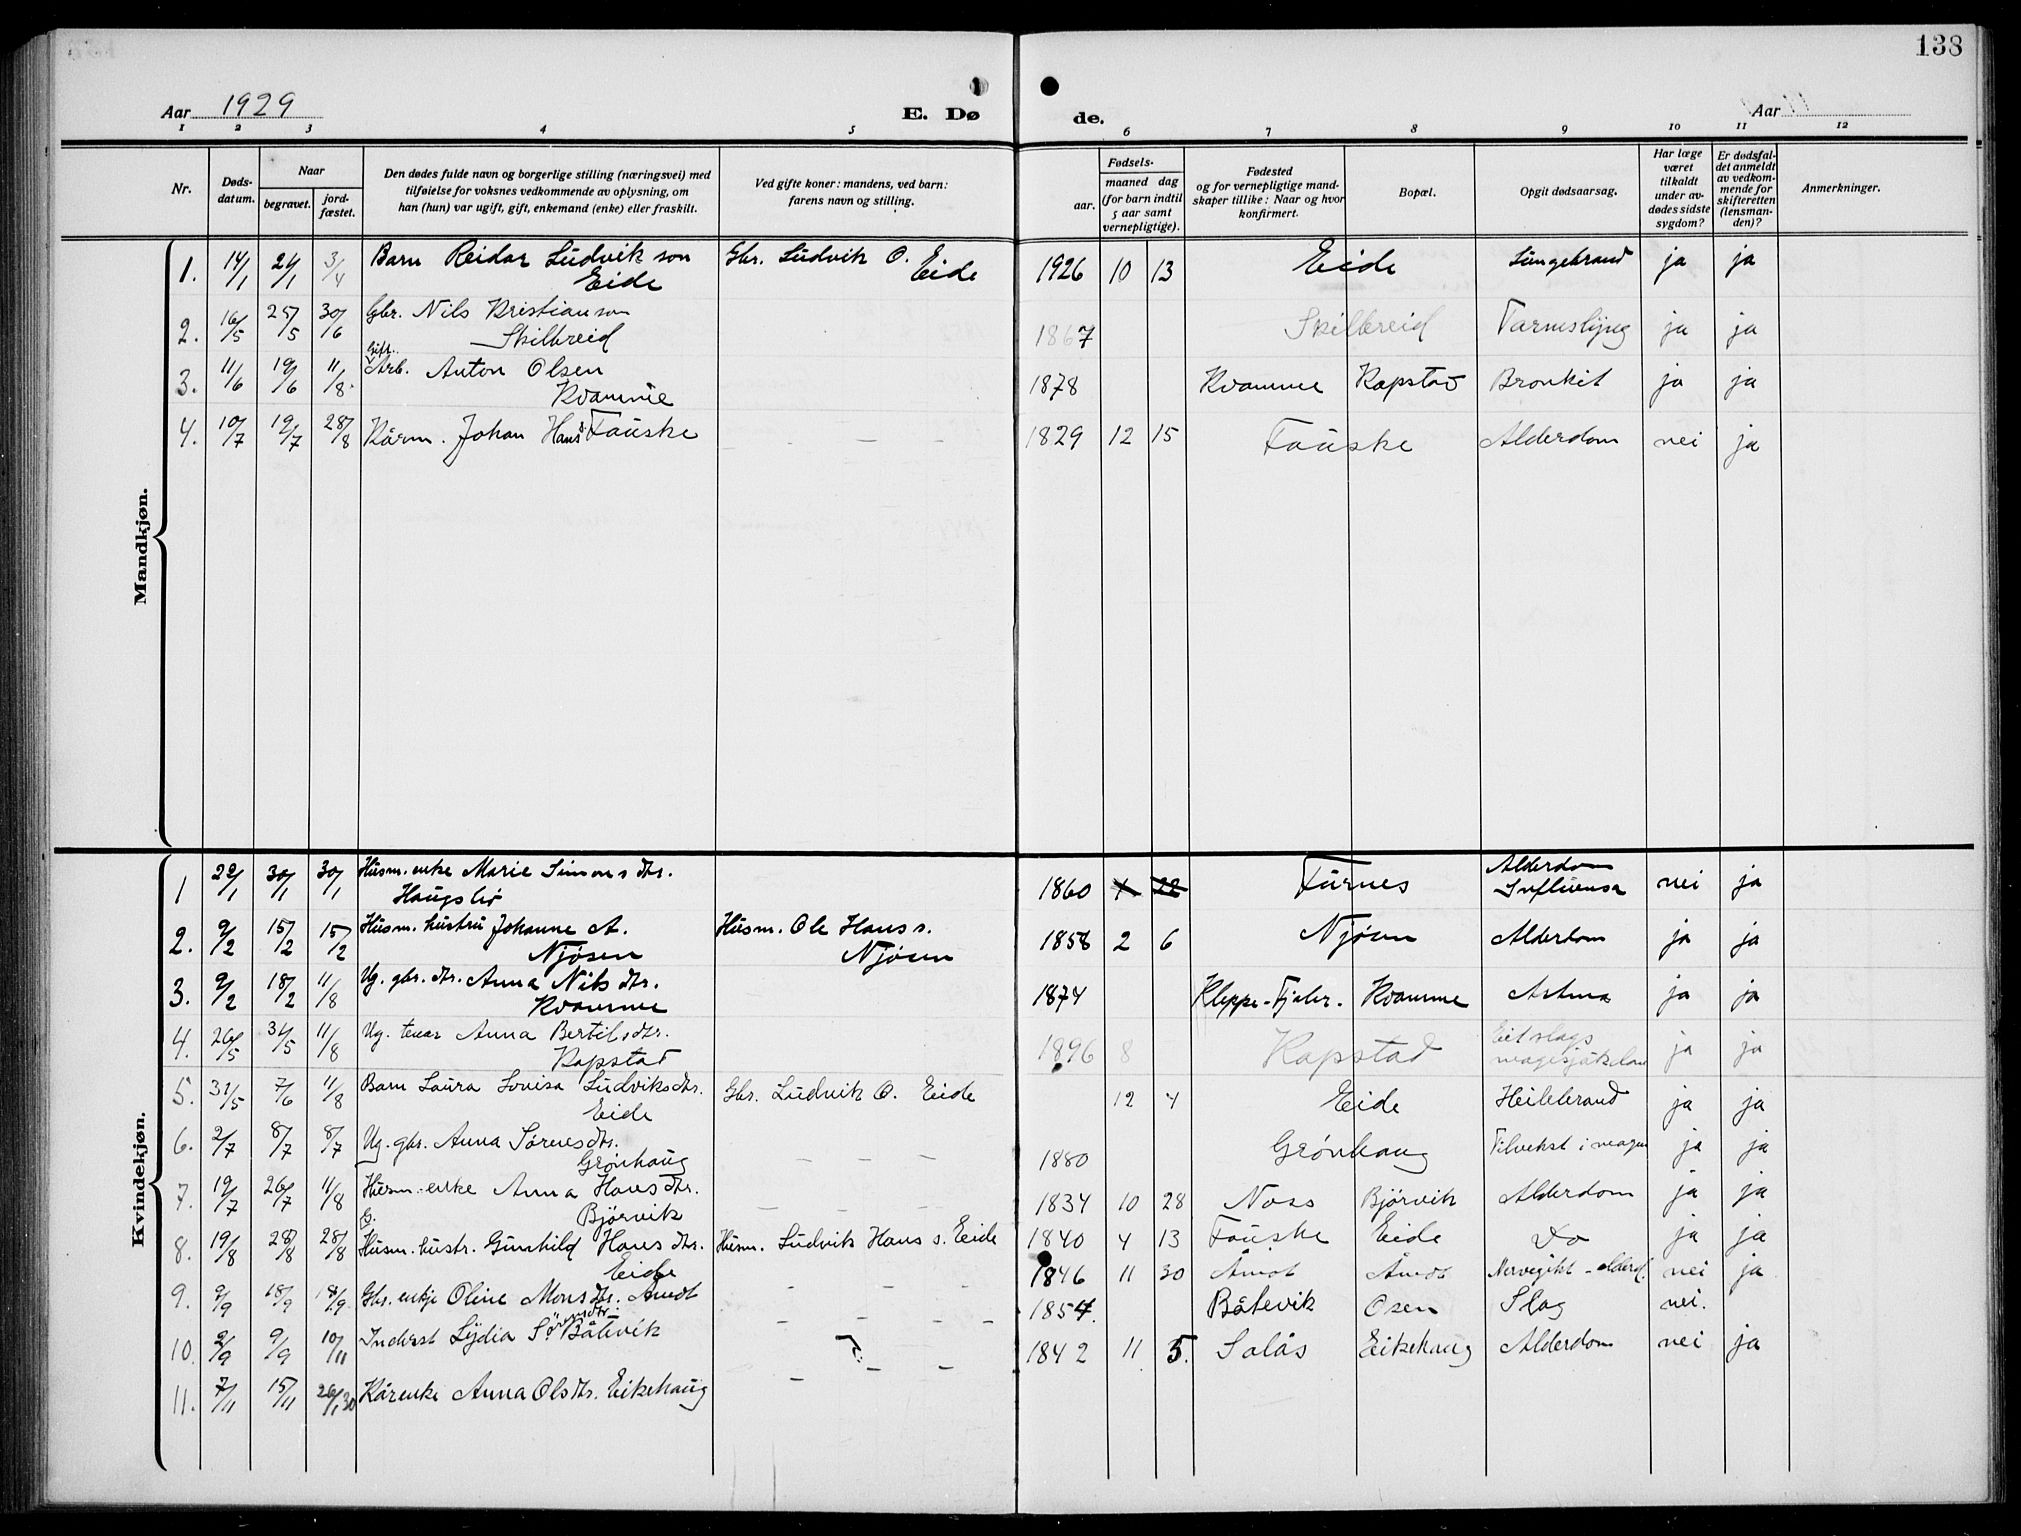 138
Aar 1929 E. Dø de. Aar
1 2 3 4 5 6 7 8 9 10 11 12
Nr.
Døds-
datum.
Naar
begravet.
jord-
fæstet.
Den dødes fulde navn og borgerlige stilling (næringsvei) med
tilføielse for voksnes vedkommende av oplysning, om
han (hun) var ugift, gift, enkemand (enke) eller fraskilt.
Ved gifte koner: mandens, ved barn:
farens navn og stilling.
Fødsels-
aar.
maaned dag
(for barn indtil
5 aar samt
vernepligtige).
Fødested
og for vernepligtige mand-
skaper tillike: Naar og hvor
konfirmert.
Bopæl.
Opgit dødsaarsag.
Har læge
været
tilkaldt
under av-
dødes sidste
sygdom?
Er dødsfal-
det anmeldt
av vedkom-
mende for
skifteretten
(lensman-
den)?
Anmerkninger.
Mandkjøn.
1. 14/1 24/1 3/4 Barn Reidar Ludvikson Gbr. Ludvik O. 1926 10 13 Eide Lungebrand ja ja
Eide Eide
2. 16/5 25/5 30/6 Gbr. Nils Kristianson 1867 Skilbreid Tarmslyng ja ja
Skilbreid
Gift.
3. 11/6 19/6 11/8 Arb. Anton Olsen 1878 Kvamme Kapstad Bronkit ja ja
Kvamme
4. 10/7 19/7 28/8 Kårm. Johan Hans s. Fauske — — — 1829 12 15 Fauske Alderdom nei ja
Kvindekjøn.
1 22/1 30/1 30/1 Husm. enke Marie Simonsdtr. 1860 1 22 Furnes Alderdom nei ja
Influensa
2. 9/2 15/2 15/2 Husm. hustru Johanne A. Husm. Ole Hans s. 1858 2 6 Njøsen Alderdom ja ja
Njøsen Njøsen
3. 9/2 18/2 11/8 Ug. gbr. dtr. Anna Nilsdtr. 1874 Kleppe-Fjaler. Kvamme Astma ja ja
Kvamme
4. 26/5 31/5 11/8 Ug. tenar Anna Bertilsdtr. 1896 8 Kapstad Eit slags ja ja
Kapstad
5. 31/5 7/6 11/8 Barn Laura Lovisa Ludviksdtr. Gbr. Ludvik O. Eide 12 4 Eide Heilebrand ja ja
Eide
6. 2/7 8/7 8/7 Ug. gbr. Anna Sørensdtr. — — — 1880 Grønhaug Tilvekst i magen ja ja
Grønhaug
7. 19/7 26/7 11/8 Husm. enke Anna Hansdtr. — — — 1834 10 28 Noss Bjørvik Alderdom ja ja
Bjørvik
G.
8. 19/8 28/8 28/8 Husm. hustr. Gunhild Hansdtr. Husm. Ludvik Hans s. Eide 1840 4 13 Fauske Eide Do ja ja
Eide
9. 9/9 18/9 18/9 Gbr. enkje Oline Monsdtr. Åmot — — — 1846 11 30 Åmot Åmot Nervegikt - alderd. nei ja
10. 2/9 9/9 10/11 Inderst Lydia Sørensdtr. Båtevik — — — — 1854. Båtevik Osen Slag nei.
11. 7/11 15/11 26/1 30 Kårenke Anna Olsdtr. Eikehaug — — — 1842 11 5. Solås Eikehaug Alderdom nei ja